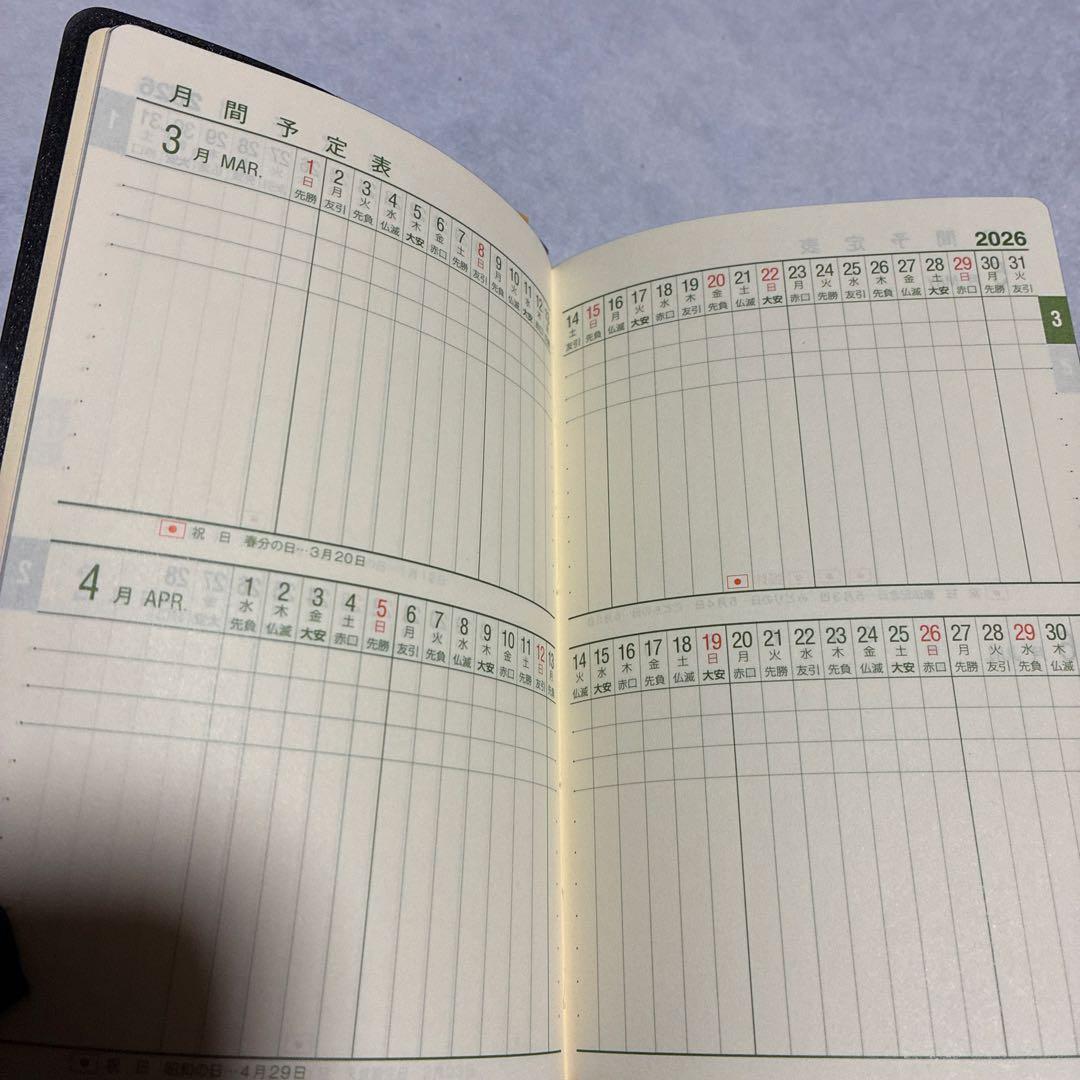 月間予定表
3月 MAR. 1 2 3 4 5 6 7 8 9 10 11 12
日 月 火 水 木 金 土 日 月 火 水
先勝 友引 先負 仏滅 大安 赤口 先勝 友引 先負 仏滅 大安
祝 日 春分の日…3月20日
4月 APR. 1 2 3 4 5 6 7 8 9 10 11 12 13
水 木 金 土 日 月 火 水 木 金 土 日 月
先負 仏滅 大安 赤口 先勝 友引 先負 仏滅 大安 赤口 先勝 友引 先負
祝 日 昭和の日…4月29日
2026
14 15 16 17 18 19 20 21 22 23 24 25 26 27 28 29 30 31
土 日 月 火 水 木 金 土 日 月 火 水 木 金 土 日 月 火
友引 先負 仏滅 大安 赤口 友引 先負 仏滅 大安 赤口 先勝 友引 先負 仏滅 大安 赤口 先勝 友引
3
14 15 16 17 18 19 20 21 22 23 24 25 26 27 28 29 30
火 水 木 金 土 日 月 火 水 木 金 土 日 月 火 水 木
仏滅 大安 赤口 先負 仏滅 大安 赤口 先勝 友引 先負 仏滅 大安 赤口 先勝 友引 先負 仏滅